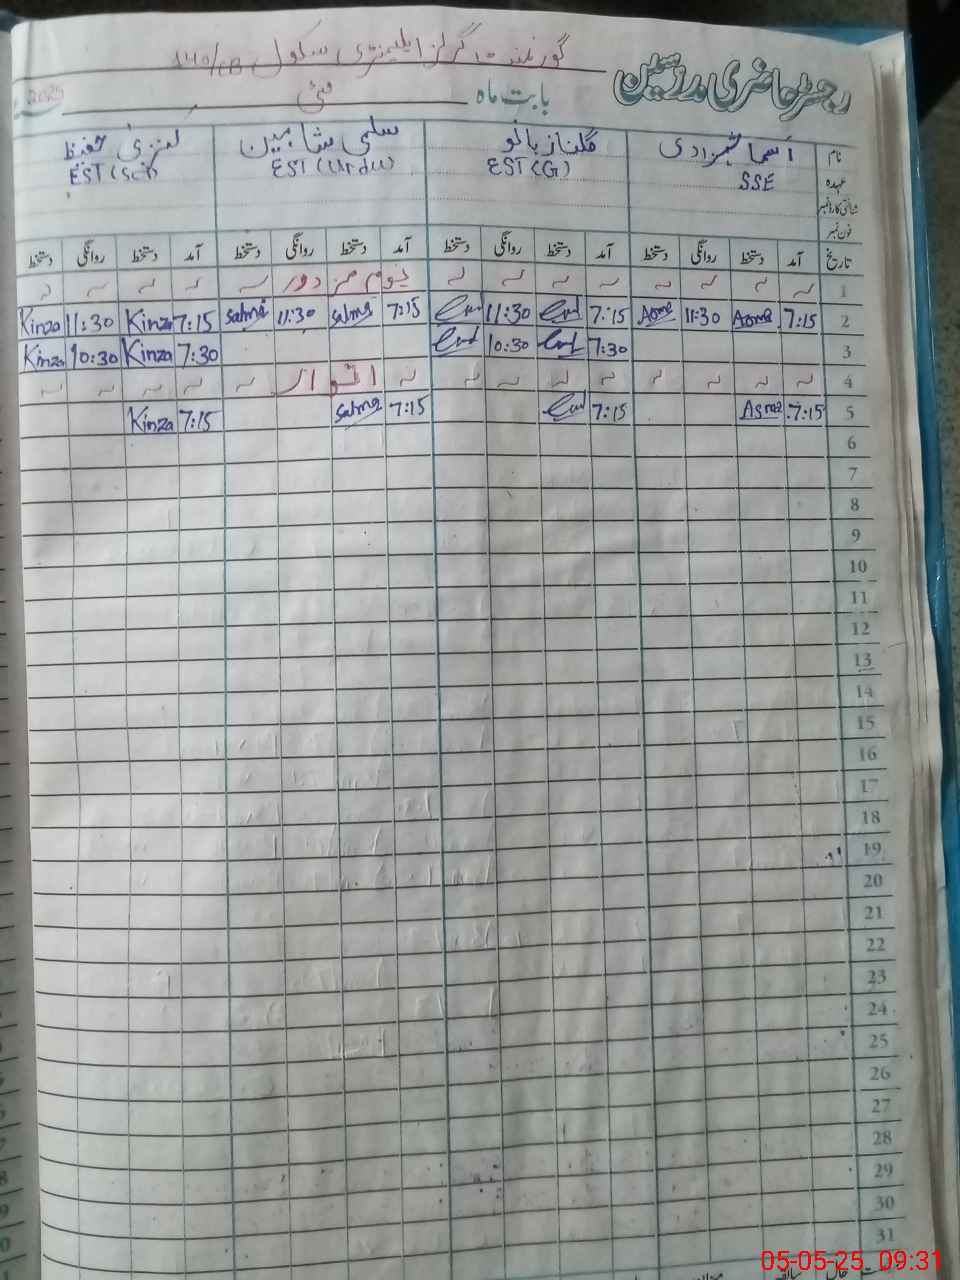 گورنمنٹ گرلز ایلیمنٹری سکول 140/EB
رجسٹر حاضری مدرسین بابت ماہ مئی 2025
نام اسما شہزادی گلناز بانو سلمی شاہین کنزی حفیظ
عہدہ SSE EST (G) EST (Urdu) EST (Sci)
شناختی کارڈ نمبر
فون نمبر
تاریخ آمد دستخط روانگی دستخط آمد دستخط روانگی دستخط آمد دستخط روانگی دستخط آمد دستخط روانگی دستخط
1 یوم مزدور
2 7:15 Asma 11:30 Asma 7:15 11:30 7:15 Salma 11:30 Salma 7:15 Kinza 11:30 Kinza
3 7:30 10:30 7:30 Kinza 10:30 Kinza
4 اتوار
5 7:15 Asma 7:15 7:15 Salma 7:15 Kinza
6
7
8
9
10
11
12
13
14
15
16
17
18
19
20
21
22
23
24
25
26
27
28
29
30
31
05-05-25 09:31